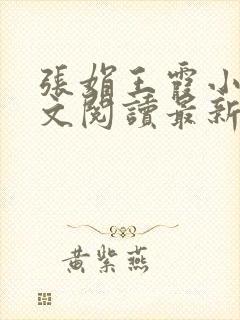 張娟王霞小
文閱讀最新
黃紫燕